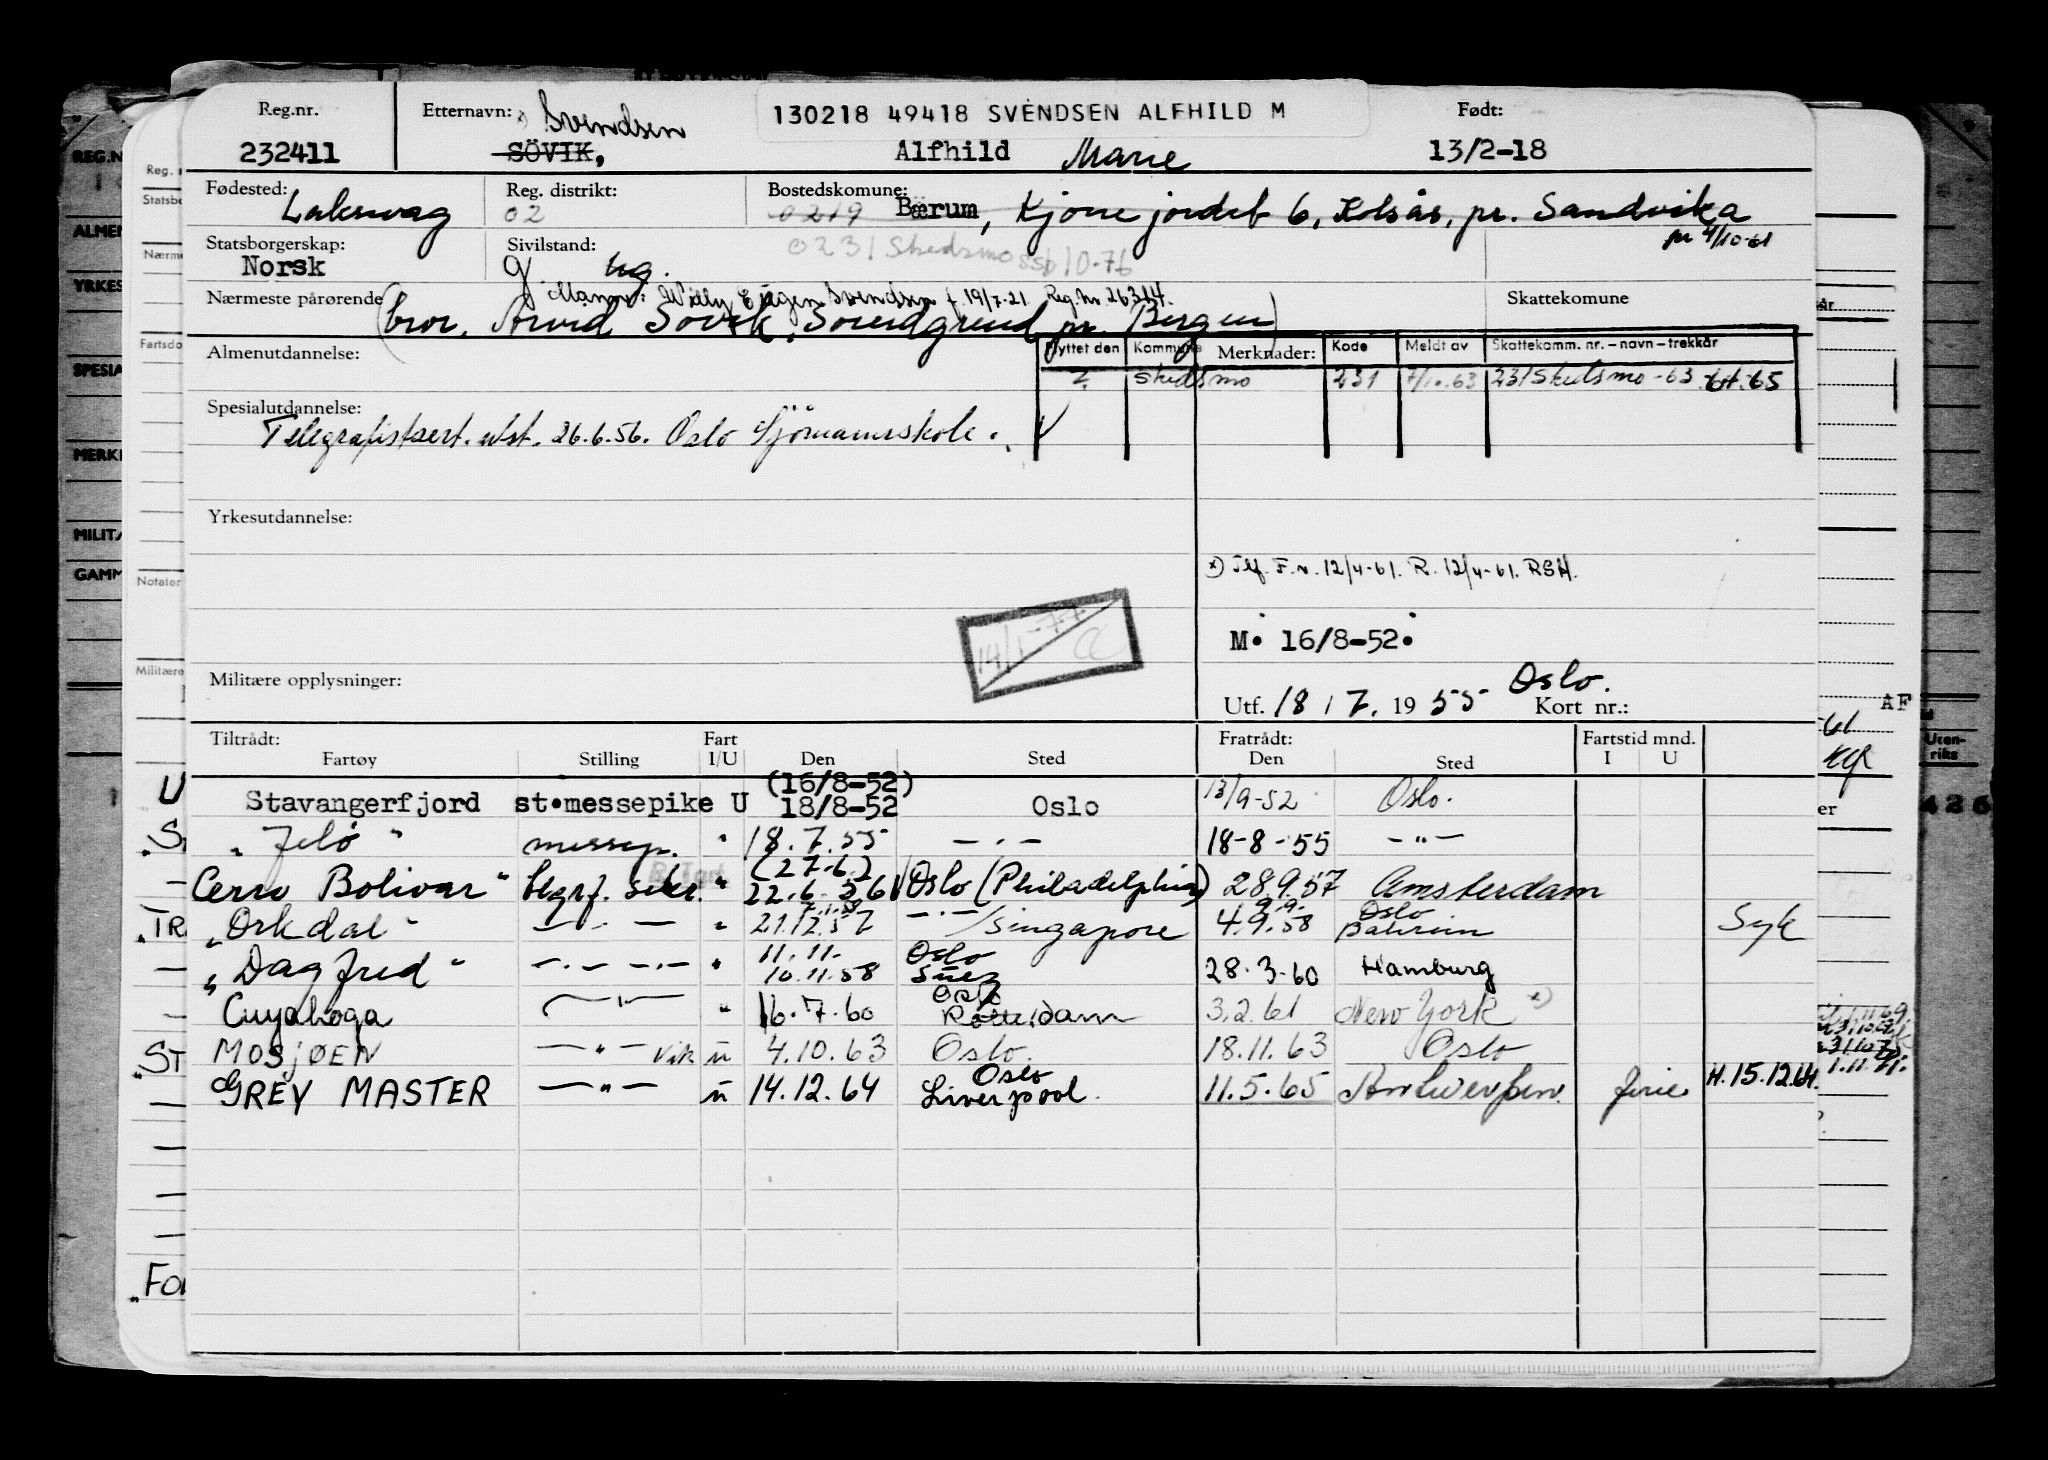 Reg.nr. Etternavn: x Svendsen 130218 49418 SVENDSEN ALFHILD M Født:
232411 SÖVIK, Alfhild Marie 13/2-18
Fødested: Laksevag Reg. distrikt: 02 Bostedskommune: 0219 Bærum, Kjønejordet 6, Kolsås, pr. Sandvika
pr 4/10-61
Statsborgerskap: Norsk Sivilstand: g ug. 0231 Skedsmo SSB 10.76
Nærmeste pårørende Mann: Willy Eugen Svendsen f. 19/7-21 Reg.Nr. 26314. Skattekomune
(bror, Arvid Sövik, Soreidgrend pr. Bergen)
Almenutdannelse: Flyttet den Kommune Merknader: Kode Meldt av Skattekomm. nr. – navn – trekkår
? Skedsmo 231 7/10.63 231 Skedsmo -63 64.65
Spesialutdannelse:
Telegrafistsert. utst. 26.6.56. Oslo Sjömannsskole.
Yrkesutdannelse:
x) Tlf. F.n. 12/4-61. R. 12/4-61. RSH.
14/1-77
M. 16/8-52.
Militære opplysninger: Oslo.
Utf. 18 / 7. 19 55 Kort nr.:
Tiltrådt: Fart Fratrådt: Fartstid mnd.
Fartøy Stilling I/U Den Sted Den Sted I U
(16/8-52)
Stavangerfjord st.messepike U 18/8-52 Oslo 13/9-52 Oslo.
"Jelö" messep. " 18.7.55 — " — 18-8-55 — " —
(27.6.)
Cerro Bolivar" tlgrf. " 22.6-56 Oslo (Philadelphia) 28.9.57 Amsterdam
7.1.58 9.9. Oslo
"Orkdal" — " — " 21.12.57 — " — /Singapore 4.9.58 Bahrein Syk
11.11. Oslo
"Dagfred" — " — " — " 10.11.58 Suez 28.3.60 Hamburg
Oslo
Cuyahoga — " — " 16.7.60 Rotterdam 3.2.61 New York x)
MOSJØEN — " — Vik u 4.10.63 Oslo. 18.11.63 Oslo
Oslo
GREY MASTER — " — u 14.12.64 Liverpool. 11.5.65 Antwerpen. ferie H.15.12.64.